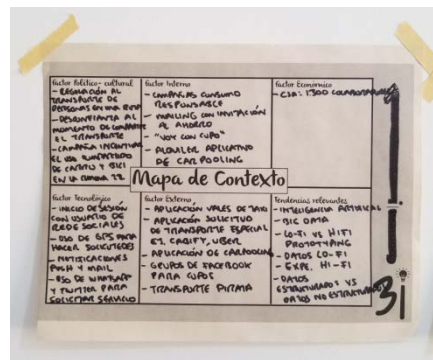 factor Político-cultural
- REGULACIÓN AL
TRANSPORTE DE
PERSONAS EN UNA RUTA
- DESCONFIANZA AL
MOMENTO DE COMPARTIR
EL TRANSPORTE
- CAMPAÑA INCENTIVAR
EL USO COMPARTIDO
DE CARRO Y BICI
EN LA
factor Interno
- CAMPAÑAS CONSUMO
RESPONSABLE
- MAILING CON INVITACIÓN
AL AHORRO
- "VOY CON CUPO"
- ALQUILER APLICATIVO
DE CARPOOLING
factor Económico
- CSA: 1300 COLABORADORES
Mapa de Contexto
factor Tecnológico
- INICIO DE SESIÓN
CON USUARIO DE
REDE SOCIALES
- USO DE GPS PARA
HACER SOLICITUDES
- NOTIFICACIONES
PUSH Y MAIL
- USO DE WHATSAPP
Y TWITTER PARA
SOLICITAR SERVICIO
factor Externo
- APLICACIÓN VALES DE TAXI
- APLICACIÓN SOLICITUD
DE TRANSPORTE ESPECIAL
EJ. CABIFY, UBER
- APLICACIÓN DE CARPOOLING
- GRUPOS DE FACEBOOK
PARA CUPOS
- TRANSPORTE PIRATA
Tendencias relevantes
- INTELIGENCIA ARTIFICIAL
- BIG DATA
- LO-FI VS HIFI
PROTOTYPING
- DATOS LO-FI
- EXPE. HI-FI
- DATOS
ESTRUCTURADOS VS
DATOS NO ESTRUCTURADOS